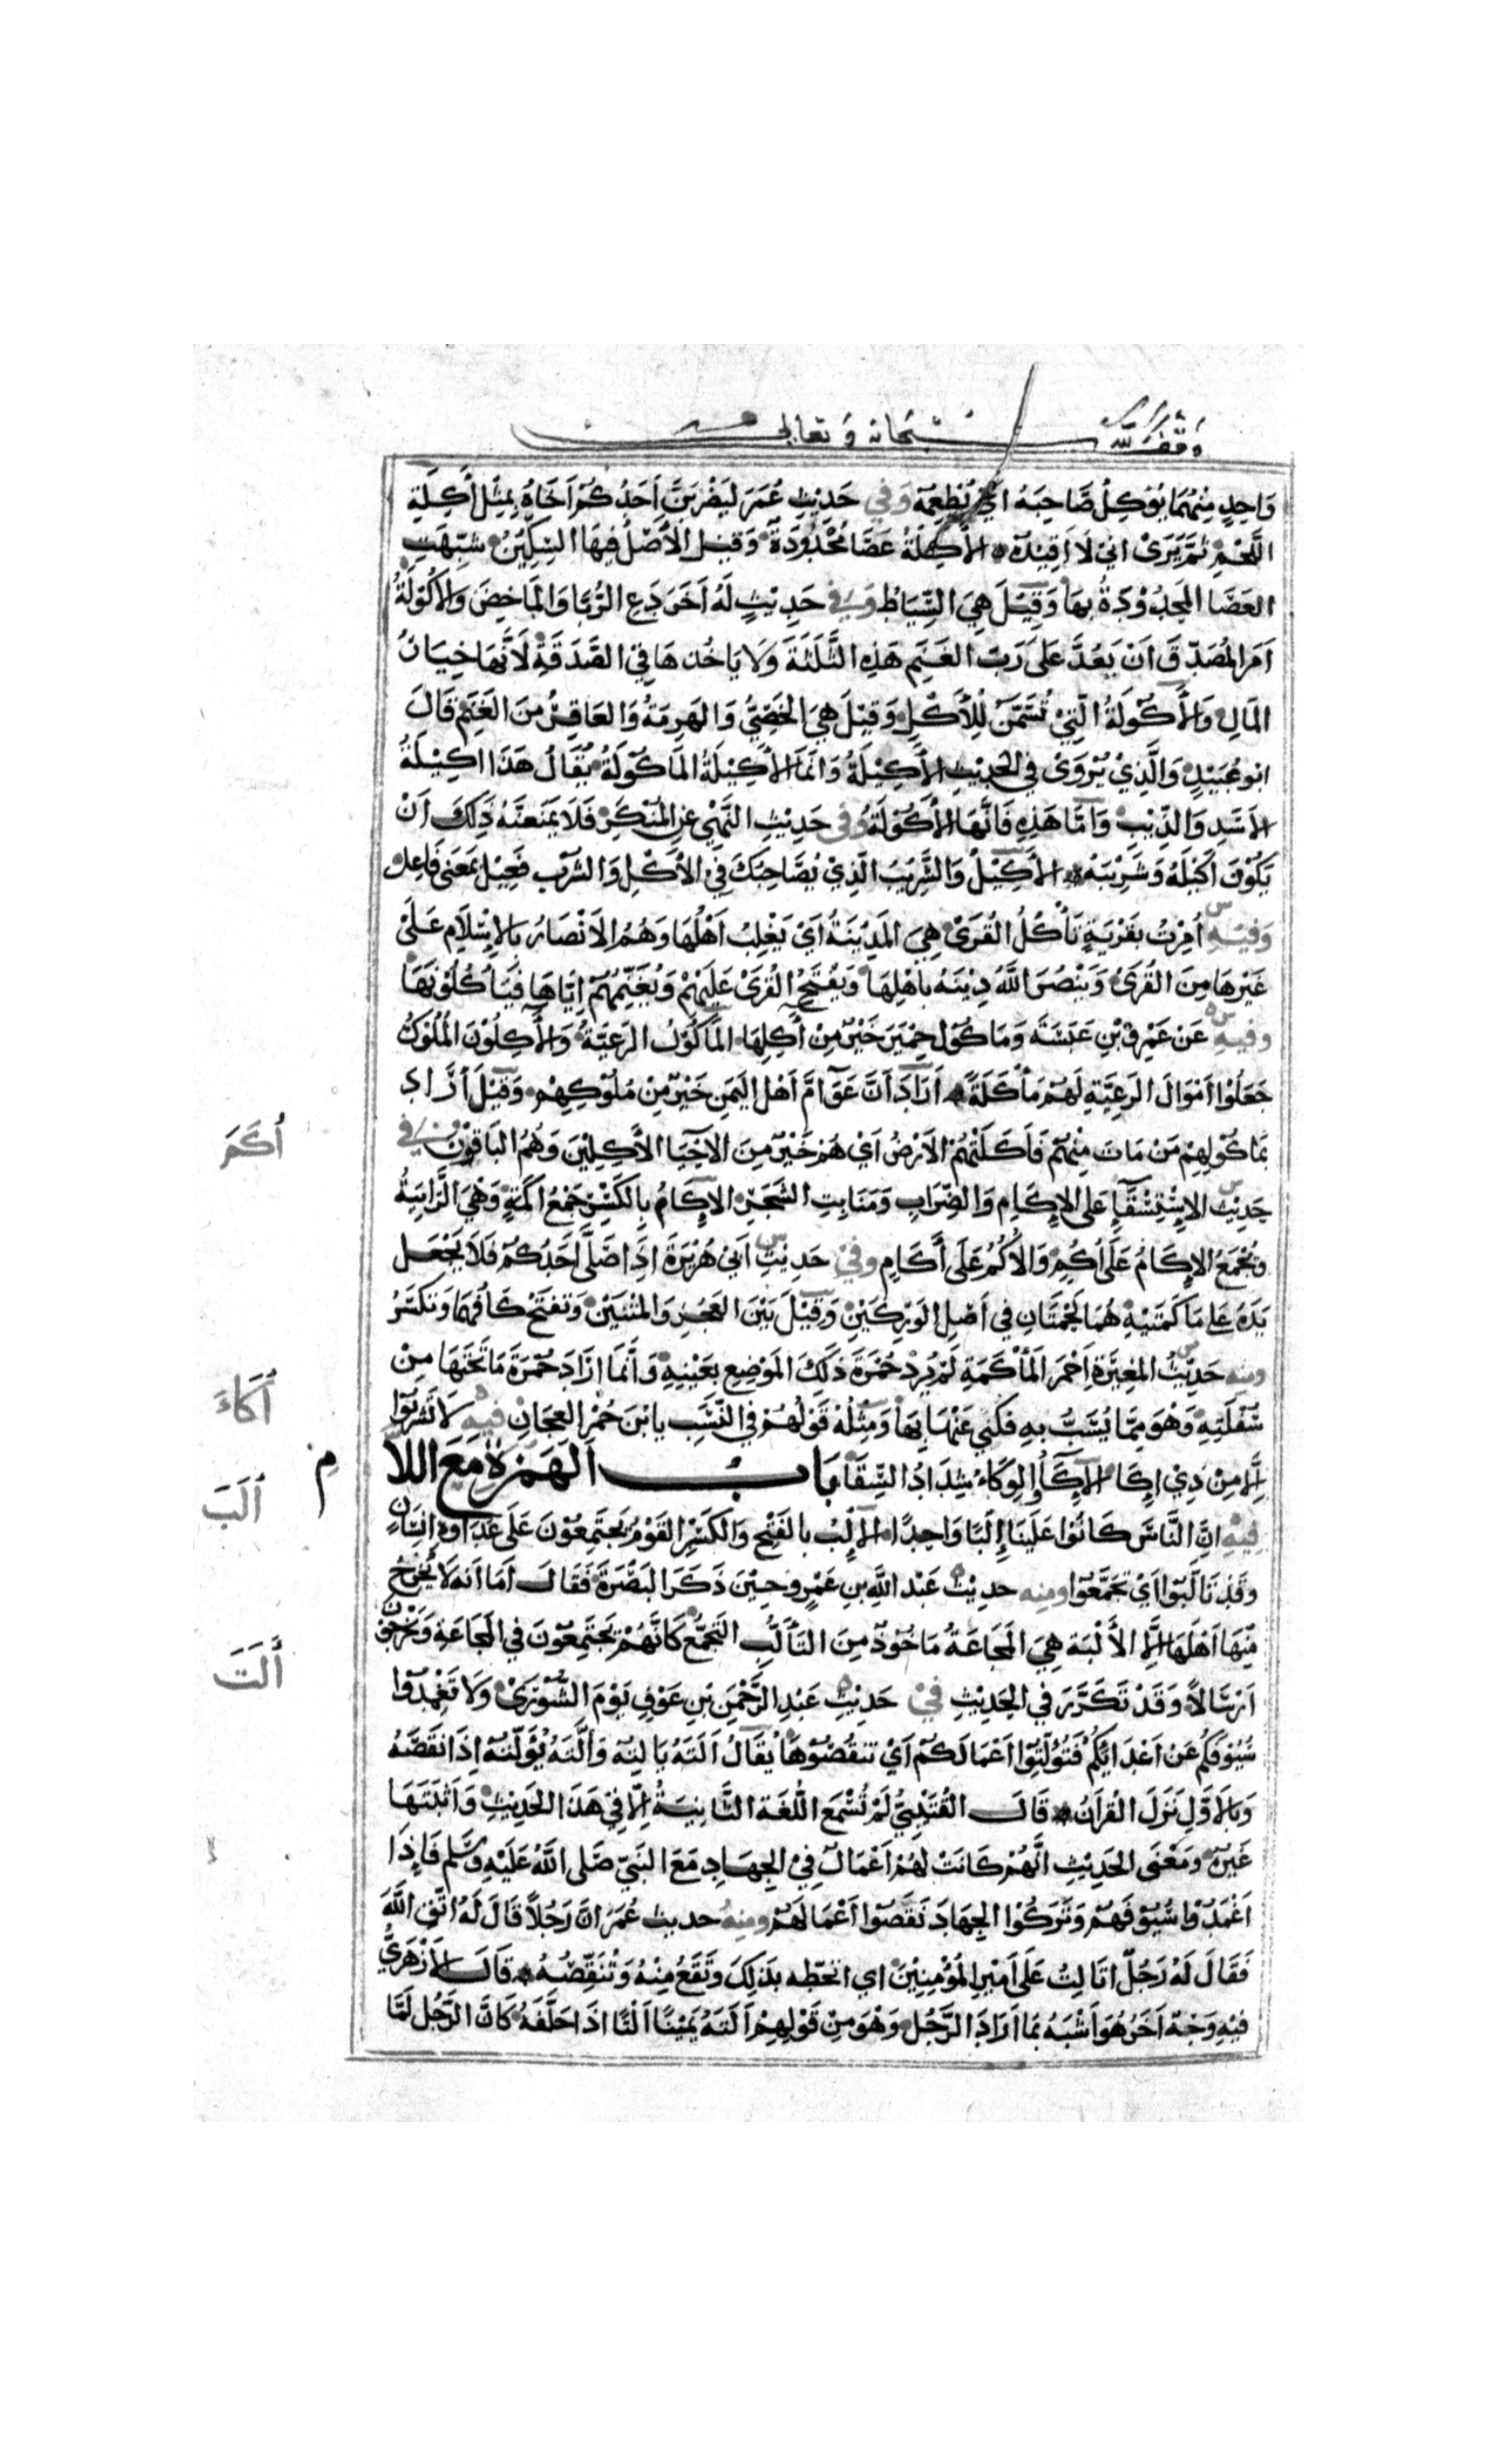 وقف لله سبحانه وتعالى
وَاحِدٍ مِنْهُمَا يُؤكِلُ صَاحِبَهُ اَيْ يُطْعِمُهُ وَفِي حَدِيْثِ عُمَرَ لَيَضْرِبَنَّ اَحَدُكُمْ اَخَاهُ بِمِثْلِ أكِلَةِ
اللَّحْمِ ثُمَّ يَرَىْ انِيْ لَا اُقِيْدُهُ الأكِلَةُ عَصًا مُحَدَّدَةٌ وَقِيْلَ الأَصْلُ فِيهَا السِّكِّيْنُ شُبِّهَتِ
العَصَا المحدودَةُ بِهَا وَقِيْلَ هِيَ السِّيَاطُ وَفِي حَدِيْثٍ لَهُ اَخَرَ دَعِ الرُّبَّا وَالمَاخِضَ وَالأَكُوْلَةُ
اَمَرَ المُصَدِّقَ اَنْ يَعُدَّ عَلَى رَبِّ الغَنَمِ هَذِهِ الثَّلَثَةَ وَلَا يَاخُذهَا فِيْ الصَّدَقَةِ لأَنَّهَا خِيَارُ
المَالِ وَالأَكُوْلَةُ الَّتِيْ تُسَمَّنُ لِلْأَكْلِ وَقِيْلَ هِيَ الخَصِيُّ وَالهَرِمَةُ وَالعَاقِرُ مِنَ الغَنَمِ قَالَ
ابوعُبَيْدٍ وَالَّذِيْ يُرْوَىْ فِي الحَدِيْثِ الأَكِيْلَةُ وَانَّمَا الأَكِيْلَةُ المَاكُوْلَةُ يُقَالُ هَذَا اكِيْلَةُ
الأَسَدِ وَالذِّيْبِ وَاَمَّا هَذِهِ فَانَّهَا الأَكُوْلَةُ وَفِي حَدِيْثِ النَّهْيِ عَنِ المُنْكَرِ فَلَا يَمْنَعَنَّهُ ذَلِكَ اَنْ
يَكُوْنَ أَكِيْلَهُ وَشَرِيْبَهُ الأَكِيْلُ وَالشَّرِيْبُ الَّذِيْ يُصَاحِبُكَ فِي الأَكْلِ وَالشُّرْبِ فَعِيْلٌ بِمَعْنَى فَاعِلٍ
وَفِيْهِ أُمِرْتُ بِقَرْيَةٍ تَأكُلُ القُرَىْ هِيَ المَدِيْنَةُ اَيْ يَغْلِبُ اَهْلُهَا وَهُمُ الاَنْصَارُ بِالاِسْلَامِ عَلَىْ
غَيْرِهَا مِنَ القُرَىْ وَيَنْصُرُ اللهُ دِيْنَهُ بِاَهْلِهَا وَيَفْتَحُ القُرَىْ عَلَيْهِمْ وَيُغَنِّمُهُمْ اِيَّاهَا فَيَأكُلُوْنَهَا
وفيه عَنْ عَمْرِو بْنِ عَبَسَةَ وَمَاكُوْلُ حِمْيَرَ خَيْرٌ مِنْ أكِلِهَا المَأكُوْلُ الرَّعِيَّةُ وَالأكِلُوْنَ المُلُوْكُ
جَعَلُوْا اَمْوَالَ الرَّعِيَّةِ لَهُمْ مَأكَلَةً اَرَادَ اَنَّ عَوَامَّ اَهْلِ اليَمَنِ خَيْرٌ مِنْ مُلُوْكِهِمْ وَقِيْلَ اَرَادَ
بِمَاكُوْلِهِمْ مَنْ مَاتَ مِنْهُمْ فَأَكَلَتْهُمُ الاَرْضُ اَيْ هُمْ خَيْرٌ مِنَ الاَحْيَا الأكِلِيْنَ وَهُمُ البَاقُوْنَ وَفِي
حَدِيْثِ الاِسْتِسْقَآءِ عَلَى الاِكَامِ وَالظِّرَابِ وَمَنَابِتِ الشَّجَرِ الاِكَامُ بِالكَسْرِ جَمْعُ اَكَمَةٍ وَهْيَ الرَّابِيَةُ
وَتُجْمَعُ الاِكَامُ عَلَى أُكُمٍ وَالأُكُمُ عَلَى أَكَامٍ وفي حَدِيْثِ اَبِيْ هُرَيْرَةَ اِذَا صَلَّى اَحَدُكُمْ فَلَا يَجْعَل
يَدَهُ عَلَى مَاكَمَتَيْهِ هُمَا لَحْمَتَانِ فِي اَصْلِ الوَرِكَيْنِ وَقِيْلَ بَيْنَ العَجُزِ وَالمَتْنَيْنِ وَتُفْتَحُ كَافُهُمَا وَتُكْسَرُ
ومنه حَدِيْثُ المُغِيْرَةِ اَحْمَر المَأْكَمَةِ لَمْ يُرِدْ حُمْرَةَ ذَلِكَ المَوْضِعِ بِعَيْنِهِ وَانَّمَا اَرَادَ حُمْرَةَ مَا تَحْتَهَا مِنْ
سِفْلَتِهِ وَهْوَ مِمَّا يُسَبُّ بِهِ فَكَنَى عَنْهَا بِهَا وَمِثْلُهُ قَوْلُهُمْ فِي السَّبِّ يا ابْنَ حُمْرِ العِجَانِ فيه لَا تَشْرَبُوْا
اِلَّا مِنْ ذِيْ اِكَاء الاِكَاءُ الوِكَاءُ شِدَادُ السِّقَا بَابُ الهَمْزَةِ مَعَ اللَّا
م
فِيْهِ اِنَّ النَّاسَ كَانُوْا عَلَيْنَا اِلْبًا وَاحِدًا الاِلْبُ بِالفَتْحِ وَالكَسْرِ القَوْمُ يَجْتَمِعُوْنَ عَلَى عَدَاوَةِ اِنْسَانٍ
وَقَدْ تَالَّبُوْا اَيْ تَجَمَّعُوْا ومنه حديث عَبْدِ اللهِ بنِ عَمْرٍو حِيْنَ ذَكَرَ البَصْرَةَ فَقَالَ اَمَا اَنهُ لَا يُخْرِجُ
مِنْهَا اَهْلَهَا اِلَّا الأَلْبَة هِيَ المَجَاعَةُ مَاخُوْذٌ مِنَ التَّأَلُّبِ التَّجَمُّعِ كَانَّهُمْ يَجْتَمِعُوْنَ فِي المَجَاعَةِ وَيَخْرُجُوْنَ
اَرْسَالًا وَقَدْ تَكَرَّرَ فِي الحَدِيْثِ فِيْ حَدِيْثِ عَبْدِ الرَّحْمَنِ بْنِ عَوْفٍ يَوْمَ الشُّوْرَىْ وَلَا تَغْمِدُوْا
سُيُوْفَكُمْ عَنْ اَعْدَائِكُمْ فَتُؤْلِتُوْا اَعْمَالَكُمْ اَيْ تَنْقُصُوْهَا يُقَالُ اَلَتَهُ يَالِتُهُ وَألَتَهُ يُؤْلِتُهُ اِذَا نَقَصَهُ
وَبِالاَوَّلِ نَزَلَ القُرْاَنُ قَالَ القُتَيْبِيُّ لَمْ تُسْمَعِ اللُّغَة الثَّانِيَةُ اِلَّا فِيْ هَذَا الحَدِيْثِ وَاَثْبَتَهَا
غَيْرُهُ وَمَعْنَى الحَدِيْثِ انَّهُمْ كَانَتْ لَهُمْ اَعْمَالٌ فِيْ الجِهَادِ مَعَ النَّبِيِّ صَلَّى اللهُ عَلَيْهِ وَسَلَّم فَاِذَا
اَغْمَدُوْا سُيُوْفَهُمْ وَتَرَكُوْا الجِهَادَ نَقَصُوْا اَعْمَالَهُمْ ومنه حديث عُمَرَ انَّ رَجُلًا قَالَ لَهُ اتَّقِ اللهَ
فَقَالَ لَهُ رَجُلٌ اتَالِتُ عَلَى اَمِيْرِ المُؤْمِنِيْنَ اي اتحطّه بِذَلِكَ وَتَضَعُ مِنْهُ وَتُنَقِّصُهُ قَالَ الاَزْهَرِيُّ
فِيْهِ وَجْهٌ اَخَرُ هُوَ اَشْبَهُ بِمَا اَرَادَ الرَّجُلُ وَهْوَ مِنْ قَوْلِهِمْ اَلَتَهُ يَمِيْنًا اَلْتًا اذَا حَلَّفَهُ كَانَّ الرَّجُل لَمَّا
أكَمَ
أكَاءَ
ألَبَ
ألَتَ